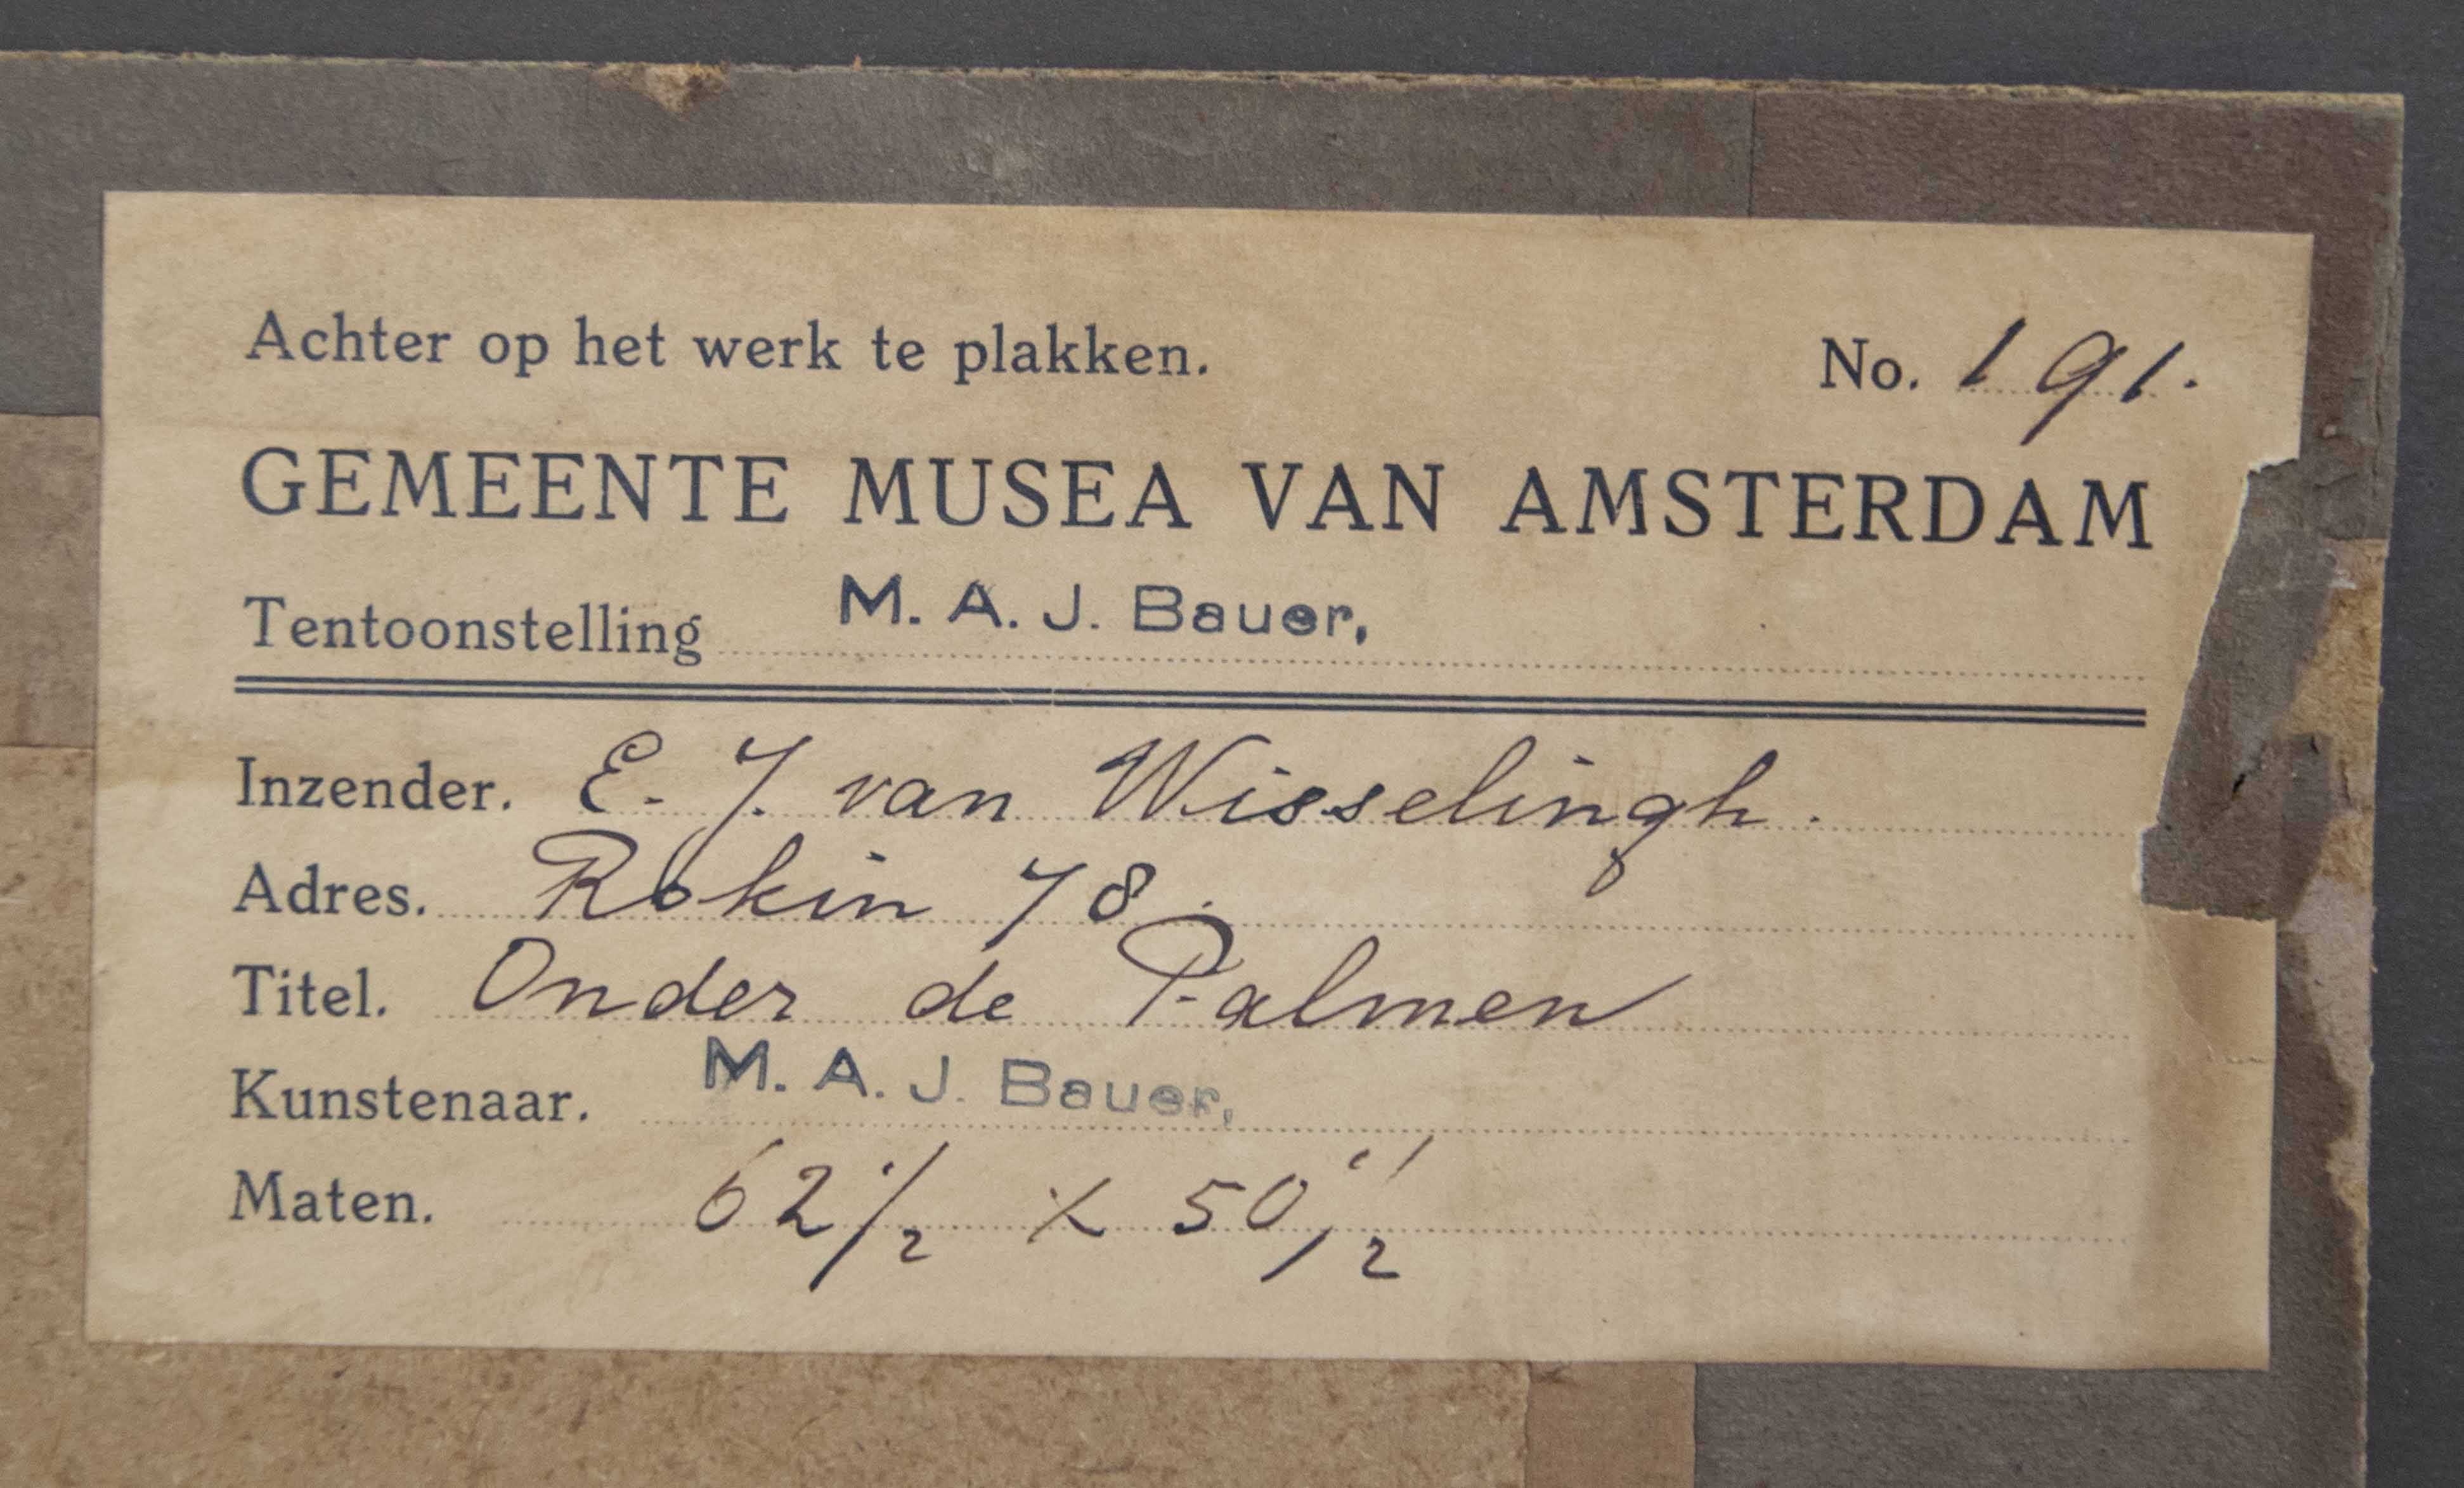 Achter op het werk te plakken. No. 191.
GEMEENTE MUSEA VAN AMSTERDAM
Tentoonstelling M. A. J. Bauer,
Inzender. E. J. van Wisselingh.
Adres. Rokin 78.
Titel. Onder de Palmen
Kunstenaar. M. A. J. Bauer,
Maten. 62 1/2 x 50 1/2